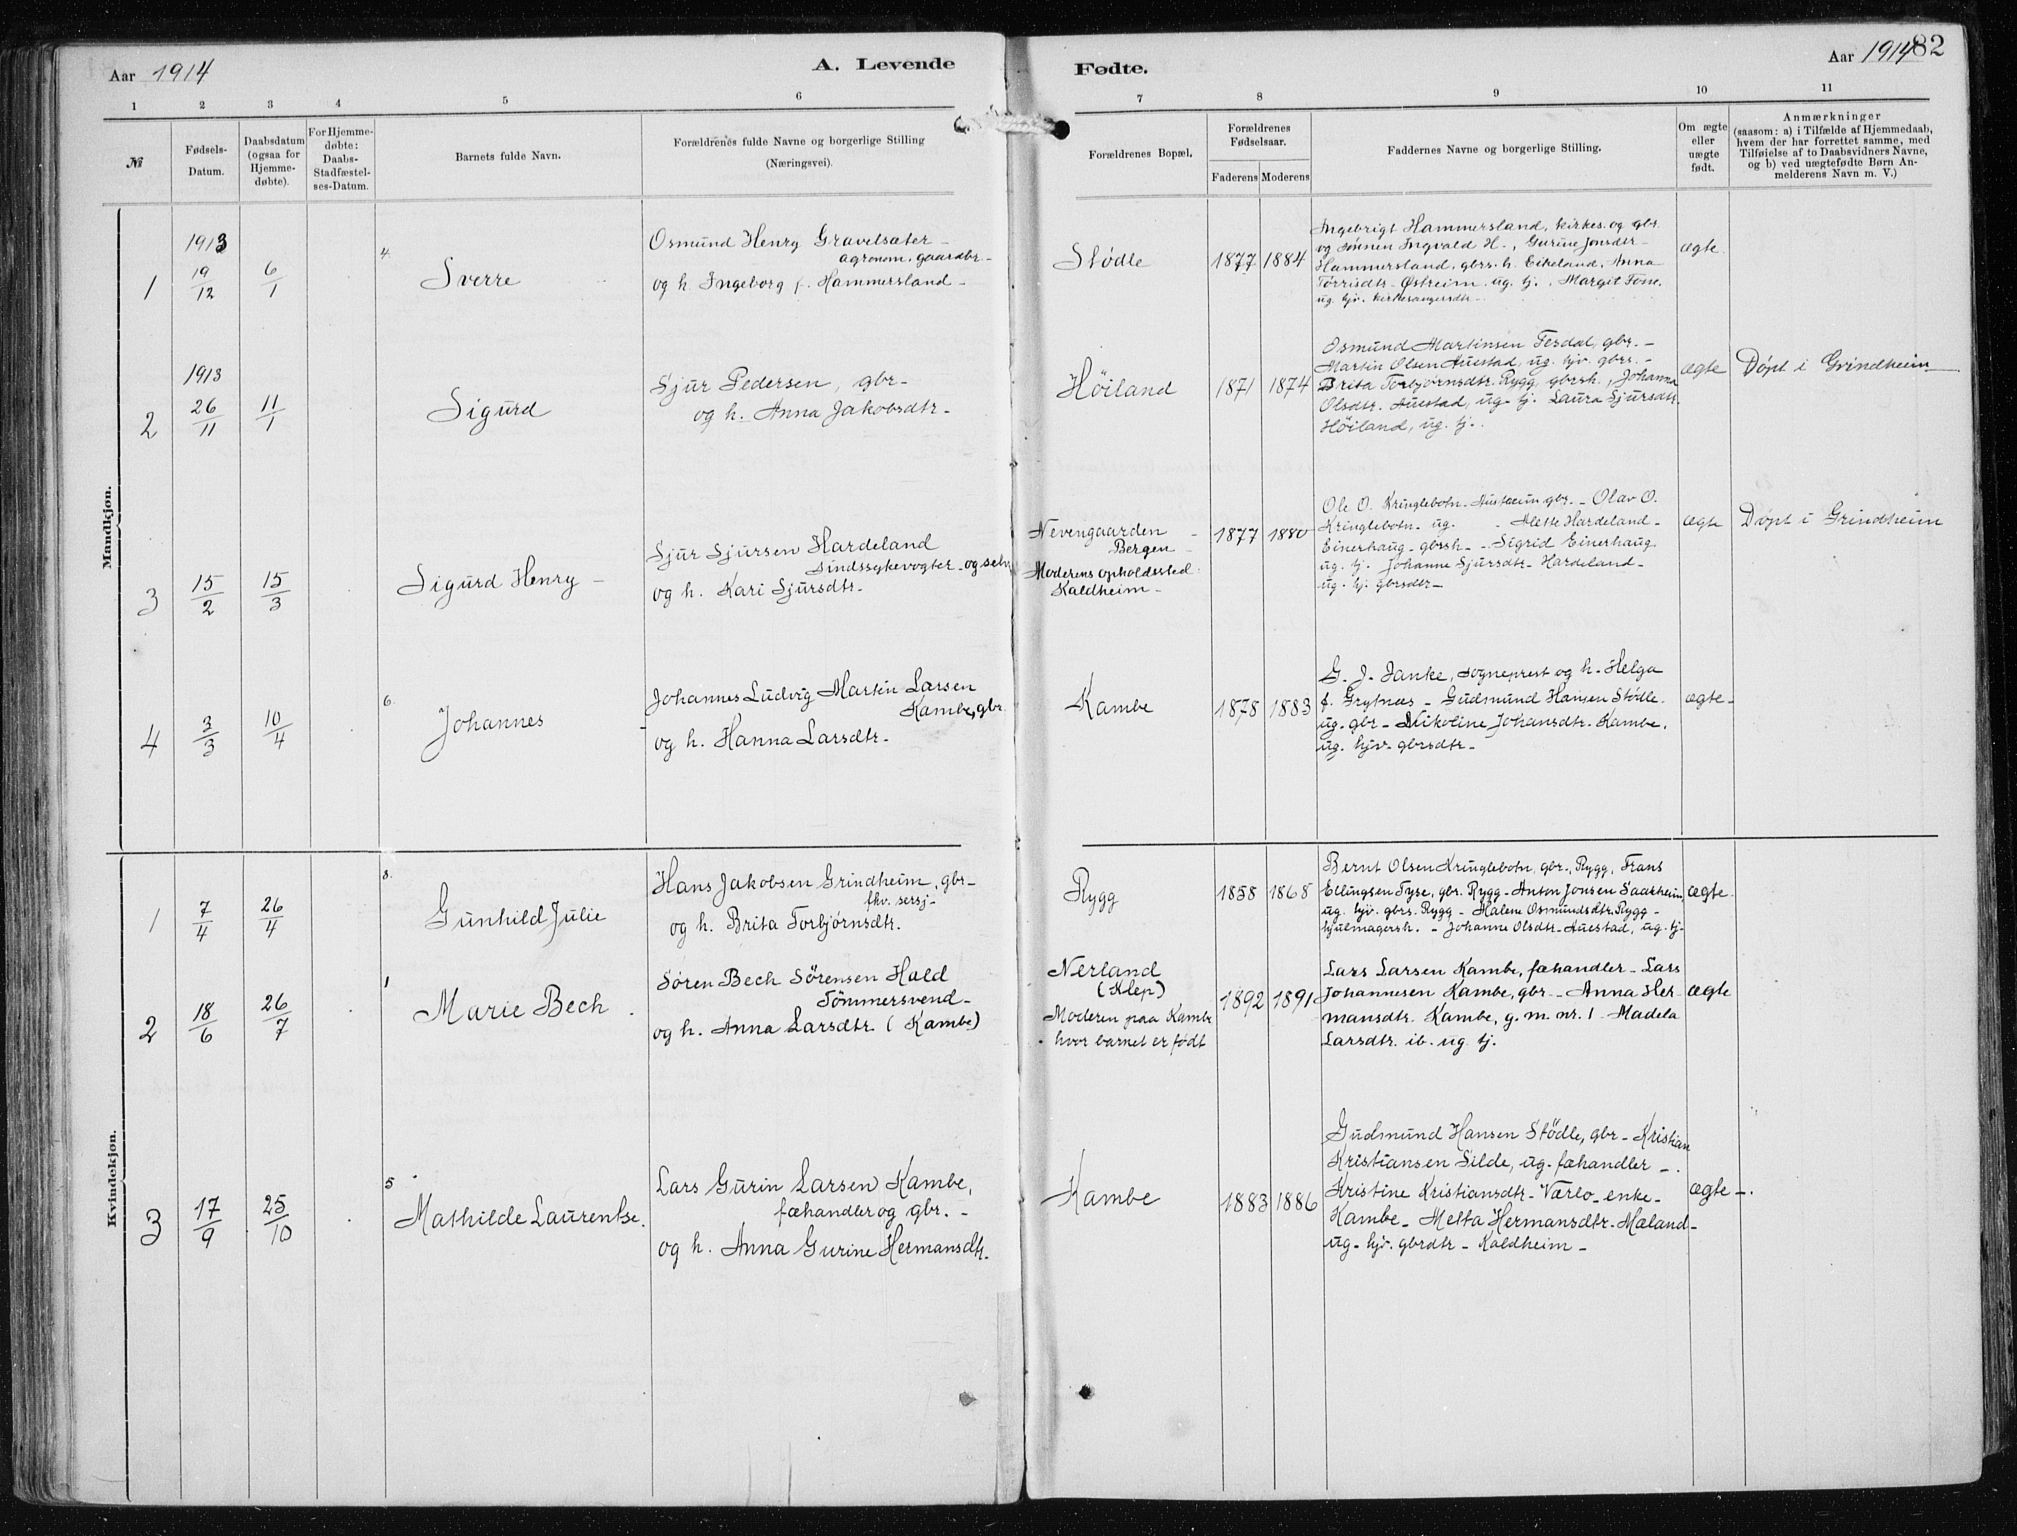 Aar 1914
A. Levende
Fødte.
Aar 1914
82
1
2
3
4
5
6
7
8
9
10
11
№
Fødsels-
Datum.
Daabsdatum
(ogsaa for
Hjemme-
døbte).
For Hjemme-
døbte:
Daabs-
Stadfæstel-
ses-Datum.
Barnets fulde Navn.
Forældrenes fulde Navne og borgerlige Stilling
(Næringsvei).
Forældrenes Bopæl.
Forældrenes
Fødselsaar.
Faderens
Moderens
Faddernes Navne og borgerlige Stilling.
Om ægte
eller
uægte
født.
Anmærkninger
(saasom: a) i Tilfælde af Hjemmedaab,
hvem der har forrettet samme, med
Tilføielse af to Daabsvidners Navne,
og b) ved uægtefødte Børn An-
melderens Navn m. V.)
Mandkjøn.
1
1913
19/12
6/1
4.
Sverre
Osmund Henry Gravelsæter -
agronom, gaardbr -
og h. Ingeborg f. Hammersland -
Stødle
1877
1884
Ingebrigt Hammersland, kirkes. og gbr.
og sønnen Ingvald H., Gurine Jonsdtr
Hammersland, gbrs. h. Eikeland, Anna
Torrisdtr Østreim, ug. tj., Margit Tone,
ug. hjv. kirkesangersdtr -
ægte
2
1913
26/11
11/1
Sigurd
Sjur Pedersen, gbr -
og h. Anna Jakobsdtr -
Høiland
1871
1874
Osmund Martinsen Tesdal, gbr. -
Martin Olsen Auestad, ug. hjv. gbrs. -
Brita Torbjørnsdtr. Rygg, gbrsh., Johanna
Olsdtr. Auestad, ug. tj. Laura Sjursdtr.
Høiland, ug. tj.
ægte
Døpt i Grindheim
3
15/2
15/3
Sigurd Henry -
Sjur Sjursen Hardeland
Sindssykevogter - og selv
og h. Kari Sjursdtr -
Nevengaarden -
Bergen -
Moderens opholdssted:
Kaldheim -
1877
1880
Ole O. Kringlebotn - Austreim gbr. - Olav O.
Kringlebotn - ug. - Alette Hardeland -
Einerhaug - gbrsh - Sigrid Einerhaug
ug. tj. Johanne Sjursdtr - Hardeland -
ug. hj. gbrsdtr -
ægte
Døpt i Grindheim
4
3/3
10/4
6.
Johannes
Johannes Ludvig Martin Larsen
Kambe, gbr
og h. Hanna Larsdtr -
Kambe
1878
1883
G. J. Janke, sogneprest og h. Helga
f. Grytnæs - Gudmund Hansen Stødle.
ug. gbr - Nikoline Johansdtr. Kambe,
ug. hjv. gbrsdtr -
ægte -
Kvindekjøn.
1
7/4
26/4
8.
Gunhild Julie
Hans Jakobsen Grindheim, gbr -
fhv. sersj -
og h. Brita Torbjørnsdtr.
Rygg
1858
1868
Bernt Olsen Kringlebotn, gbr., Rygg, Frans
Ellingsen Tyse, gbr. Rygg - Anton Jonsen Saarheim,
ug. hjv. gbrs. Rygg - Malene Osmundsdtr. Rygg -
hjulmagersh. - Johanne Olsdtr - Auestad, ug. tj -
ægte
2
18/6
26/7
1
Marie Bech
Søren Bech Sørensen Hald
Tømmersvend -
og h. Anna Larsdtr (Kambe)
Nerland
(Klep)
Moderen paa Kambe
hvor barnet er født
1892
1891
Lars Larsen Kambe, fæhandler - Lars
Johannesen Kambe, gbr. - Anna Her-
mansdtr. Kambe, g. m. nr. 1 - Madela
Larsdtr. ib. ug. tj.
ægte
3
17/9
25/10
5
Mathilde Laurentse.
Lars Gurin Larsen Kambe,
fæhandler og gbr. -
og h. Anna Gurine Hermansdtr.
Kambe
1883
1886
Gudmund Hansen Stødle, gbr - Kristian
Kristiansen Silde, ug. fæhandler -
Kristine Kristiansdtr - Værlo - enke -
Kambe - Metta Hermansdtr. Maland -
ug. hjv. gbrdtr - Kaldheim -
ægte -